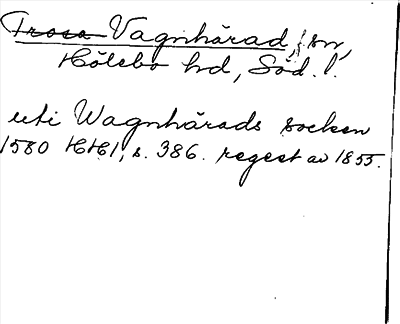 Trosa Vagnhärad, sn,
Hölebo hd, Söd. l.
uti Wagnhärads socken
1580 HH1, s. 386. regest av 1855.